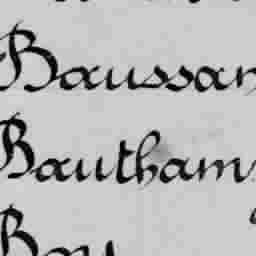 Baussan
Bautham
Boy